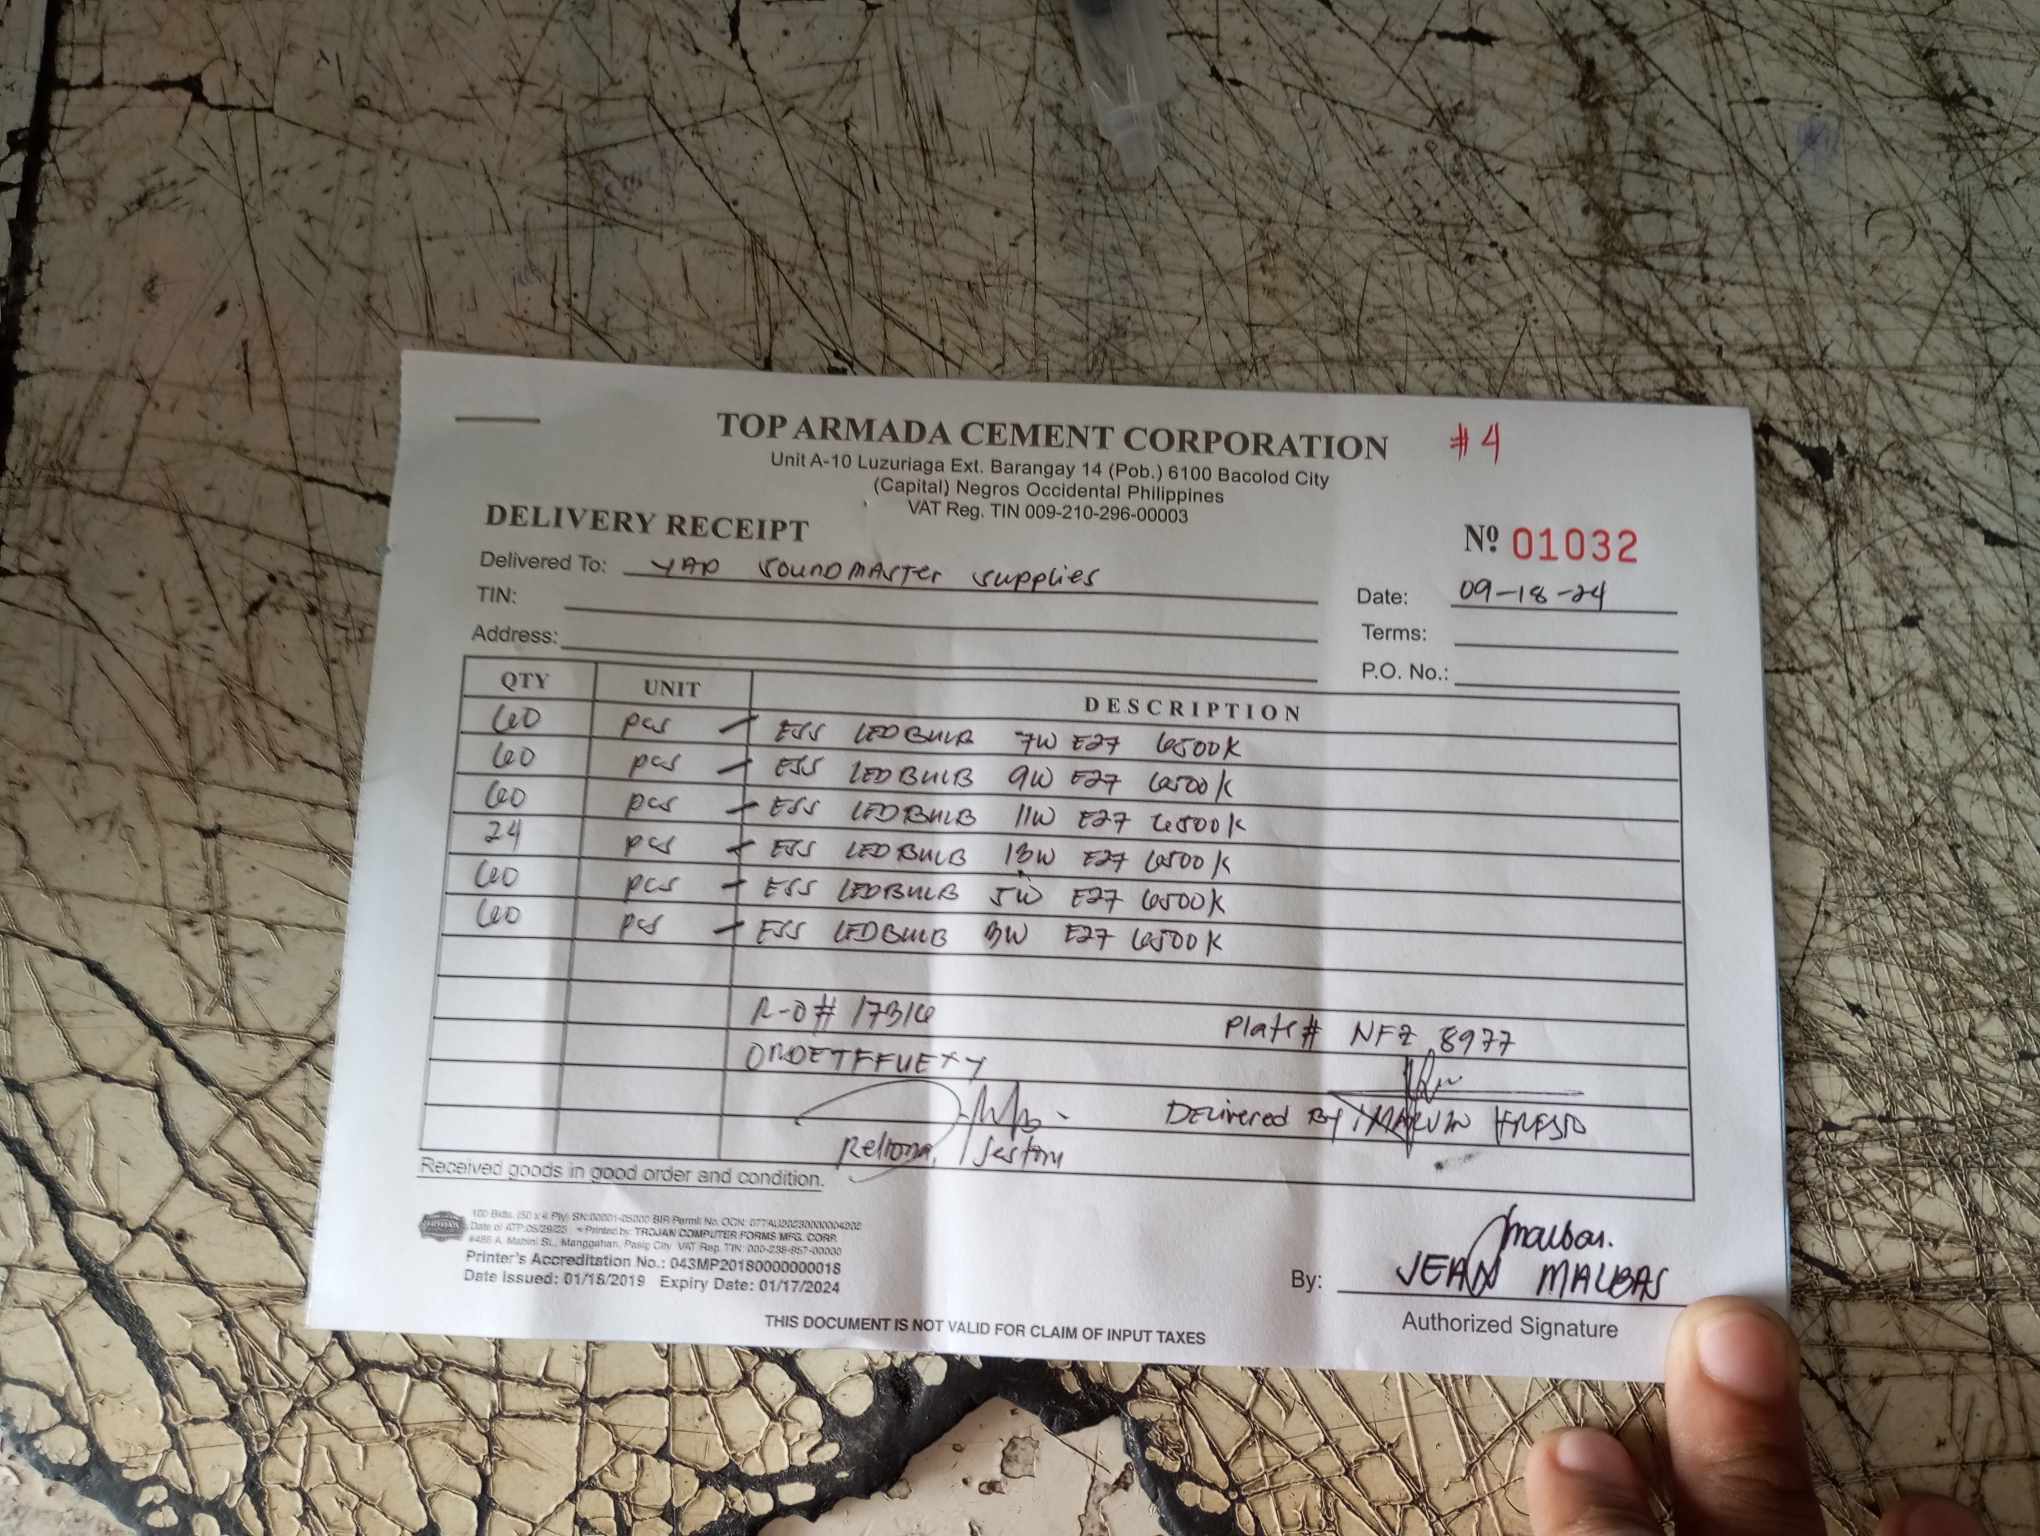 TOP ARMADA CEMENT CORPORATION # 4
Unit A-10 Luzuriaga Ext. Barangay 14 (Pob.) 6100 Bacolod City
(Capital) Negros Occidental Philippines
VAT Reg. TIN 009-210-296-00003
DELIVERY RECEIPT Nº 01032
Delivered To: YAP SOUNDMASTER SUPPLIES
Date: 09-18-24
TIN:
Terms:
Address:
P.O. No.:
QTY UNIT DESCRIPTION
60 pcs ESS LEDBULB 7W E27 6500K
60 pcs ESS LEDBULB 9W E27 6500K
60 pcs ESS LEDBULB 11W E27 6500K
24 pcs ESS LEDBULB 13W E27 6500K
60 pcs ESS LEDBULB 5W E27 6500K
60 pcs ESS LEDBULB 3W E27 6500K
R-O# 17316 Plate# NFZ 8977
Delivered By
Received goods in good order and condition.
100 Bklts. (50 x 4 Ply) SN:00001-05000 BIR Permit No. OCN:
Printed by: TROJAN COMPUTER FORMS MFG. CORP.
Pasig City VAT Reg. TIN: 000-238-857-00000
Printer's Accreditation No.: 043MP20180000000018
Date Issued: 01/18/2019 Expiry Date: 01/17/2024
By: JEAN MALBAS
Authorized Signature
THIS DOCUMENT IS NOT VALID FOR CLAIM OF INPUT TAXES